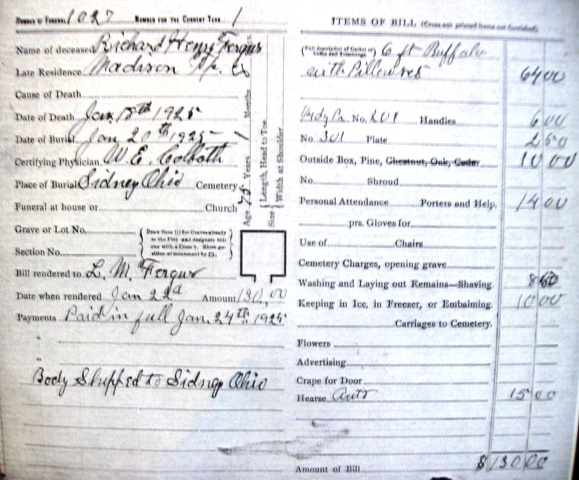 Number of Funeral 1027 Number for the Current Year 1
Name of deceased Richard Henry Fergus
Late Residence Madison
Cause of Death
Date of Death Jan 18th 1925
Date of Burial Jan 20th 1925
Certifying Physician W. E. Colbath
Place of Burial Sidney Ohio Cemetery
Funeral at house or Church
Grave or Lot No.
Section No.
Bill rendered to L. M. Fergus
Date when rendered Jan 22d Amount 130.00
Payments Paid in full Jan. 24th 1925
"
"
Body Shipped to Sidney Ohio
Age 75 Years Months
Size Length, Head to Toe.
Width at Shoulder
ITEMS OF BILL
6 ft Buffalo
with Pillowes 64 00
No. 201 Handles 6 00
No. 301 Plate 2 50
Outside Box, Pine, Chestnut, Oak, Cedar 10 00
No. Shroud
Personal Attendance Porters and Help. 14 00
prs. Gloves for
Use of Chairs
Cemetery Charges, opening grave
Washing and Laying out Remains—Shaving. 8 50
Keeping in Ice, in Freezer, or Embalming. 10 00
Carriages to Cemetery.
Flowers
Advertising
Crape for Door
Hearse Auto 15 00
Amount of Bill $130 00